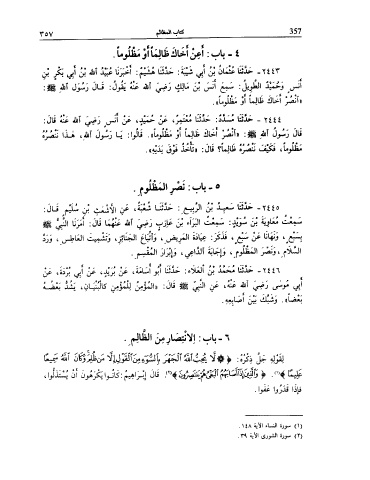 ٣٥٧ كتاب المظالم 357
٤ - باب : أَعِنْ أَخَاكَ ظَالِماً أَوْ مَظْلُوماً.
٢٤٤٣- حَدَّثَنَا عُثْمَانُ بْنُ أَبِي شَيْبَةَ: حَدَّثَنَا هُشَيْمٌ: أَخْبَرَنَا عُبَيْدُ اللهِ بْنُ أَبِي بَكْرِ بْنِ
أَنَسٍ وَحُمَيْدٌ الطَّوِيلُ: سَمِعَ أَنَسَ بْنَ مَالِكٍ رَضِيَ اللهُ عَنْهُ يَقُولُ: قَالَ رَسُولُ اللهِ ﷺ:
«انْصُرْ أَخَاكَ ظَالِماً أَوْ مَظْلُوماً».
٢٤٤٤- حَدَّثَنَا مُسَدَّدٌ: حَدَّثَنَا مُعْتَمِرٌ، عَنْ حُمَيْدٍ، عَنْ أَنَسٍ رَضِيَ اللهُ عَنْهُ قَالَ:
قَالَ رَسُولُ اللهِ ﷺ: «انْصُرْ أَخَاكَ ظَالِماً أَوْ مَظْلُوماً». قَالُوا: يَا رَسُولَ اللهِ، هَذَا نَنْصُرُهُ
مَظْلُوماً، فَكَيْفَ نَنْصُرُهُ ظَالِماً؟ قَالَ: «تَأْخُذُ فَوْقَ يَدَيْهِ».
٥ - باب : نَصْرِ المَظْلُومِ .
٢٤٤٥- حَدَّثَنَا سَعِيدُ بْنُ الرَّبِيعِ: حَدَّثَنَا شُعْبَةُ، عَنِ الأَشْعَثِ بْنِ سُلَيْمٍ قَالَ:
سَمِعْتُ مُعَاوِيَةَ بْنَ سُوَيْدٍ: سَمِعْتُ البَرَاءَ بْنَ عَازِبٍ رَضِيَ اللهُ عَنْهُمَا قَالَ: أَمَرَنَا النَّبِيُّ ﷺ
بِسَبْعٍ، وَنَهَانَا عَنْ سَبْعٍ، فَذَكَرَ: عِيَادَةَ المَرِيضِ، وَاتِّبَاعَ الجَنَائِزِ، وَتَشْمِيتَ العَاطِسِ، وَرَدَّ
السَّلَامِ، وَنَصْرَ المَظْلُومِ، وَإِجَابَةَ الدَّاعِي، وَإِبْرَارَ المُقْسِمِ.
٢٤٤٦- حَدَّثَنَا مُحَمَّدُ بْنُ العَلَاءِ: حَدَّثَنَا أَبُو أُسَامَةَ، عَنْ بُرَيْدٍ، عَنْ أَبِي بُرْدَةَ، عَنْ
أَبِي مُوسَى رَضِيَ اللهُ عَنْهُ، عَنِ النَّبِيِّ ﷺ قَالَ: «المُؤْمِنُ لِلْمُؤْمِنِ كَالبُنْيَانِ، يَشُدُّ بَعْضُهُ
بَعْضاً». وَشَبَّكَ بَيْنَ أَصَابِعِهِ.
٦ - باب : الِانْتِصَارِ مِنَ الظَّالِمِ .
لِقَوْلِهِ جَلَّ ذِكْرُهُ: ﴿لَا يُحِبُّ اللَّهُ الْجَهْرَ بِالسُّوءِ مِنَ الْقَوْلِ إِلَّا مَن ظُلِمَ وَكَانَ اللَّهُ سَمِيعًا
عَلِيمًا﴾(١). ﴿وَالَّذِينَ إِذَا أَصَابَهُمُ الْبَغْيُ هُمْ يَنتَصِرُونَ﴾(٢). قَالَ إِبْرَاهِيمُ: كَانُوا يَكْرَهُونَ أَنْ يُسْتَذَلُّوا،
فَإِذَا قَدَرُوا عَفَوْا.
(١) سورة النساء الآية ١٤٨.
(٢) سورة الشورى الآية ٣٩.